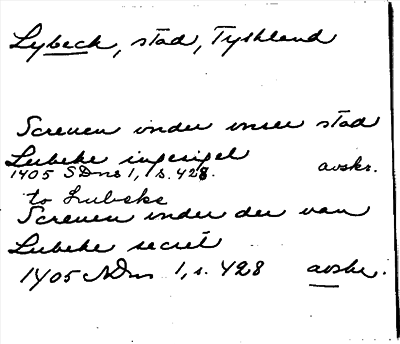 Lybeck, stad, Tyskland
Screuen under unser stad
Lubeke ingesigel
1405 SDns 1, s. 428. avskr.
to Lubeke
Screuen under der van
Lubeke secret
1405 SDns 1, s. 428 avskr.